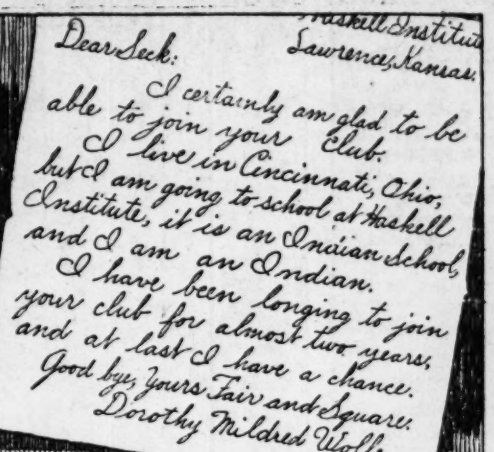 Haskell Institute
Lawrence, Kansas.
Dear Seck:
I certainly am glad to be
able to join your club.
I live in Cincinnati, Ohio,
but I am going to school at Haskell
Institute, it is an Indian School,
and I am an Indian.
I have been longing to join
your club for almost two years,
and at last I have a chance.
Good bye, Yours Fair and Square.
Dorothy Mildred Wolfe